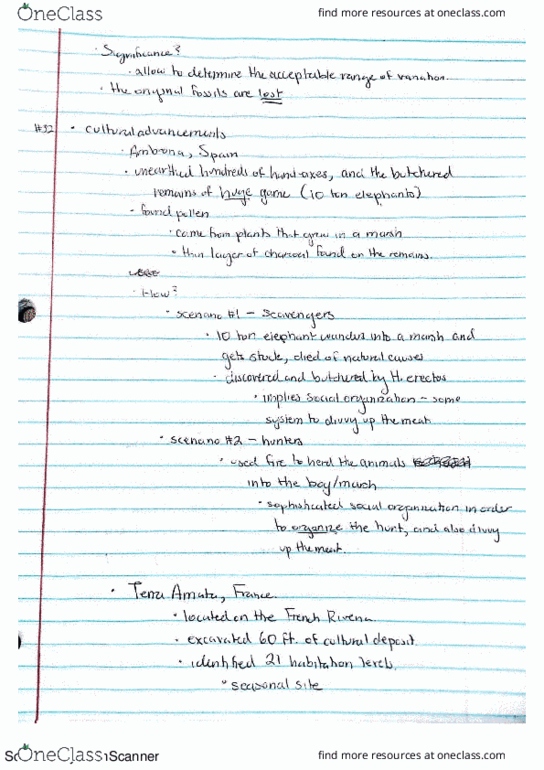 OneClass
find more resources at oneclass.com
· Significance?
· allow to determine the acceptable range of variation.
· the original fossils are lost
#32 · cultural advancements
· Ambrona, Spain
· unearthed hundreds of hand-axes, and the butchered
remains of huge game (10 ton elephants)
· found pollen
· came from plants that grew in a marsh
· thin layer of charcoal found on the remains.
· How?
· scenario #1 - Scavengers
· 10 ton elephant wanders into a marsh and
gets stuck, died of natural causes
· discovered and butchered by H. erectus
· implies social organization - some
system to divvy up the meat
· scenario #2 - hunters
· used fire to herd the animals
into the bog/marsh
· sophisticated social organization in order
to organize the hunt, and also divvy
up the meat.
· Terra Amata, France
· located on the French Riviera
· excavated 60 ft. of cultural deposit.
· identified 21 habitation levels.
· seasonal site
OneClass
Scanner
find more resources at oneclass.com